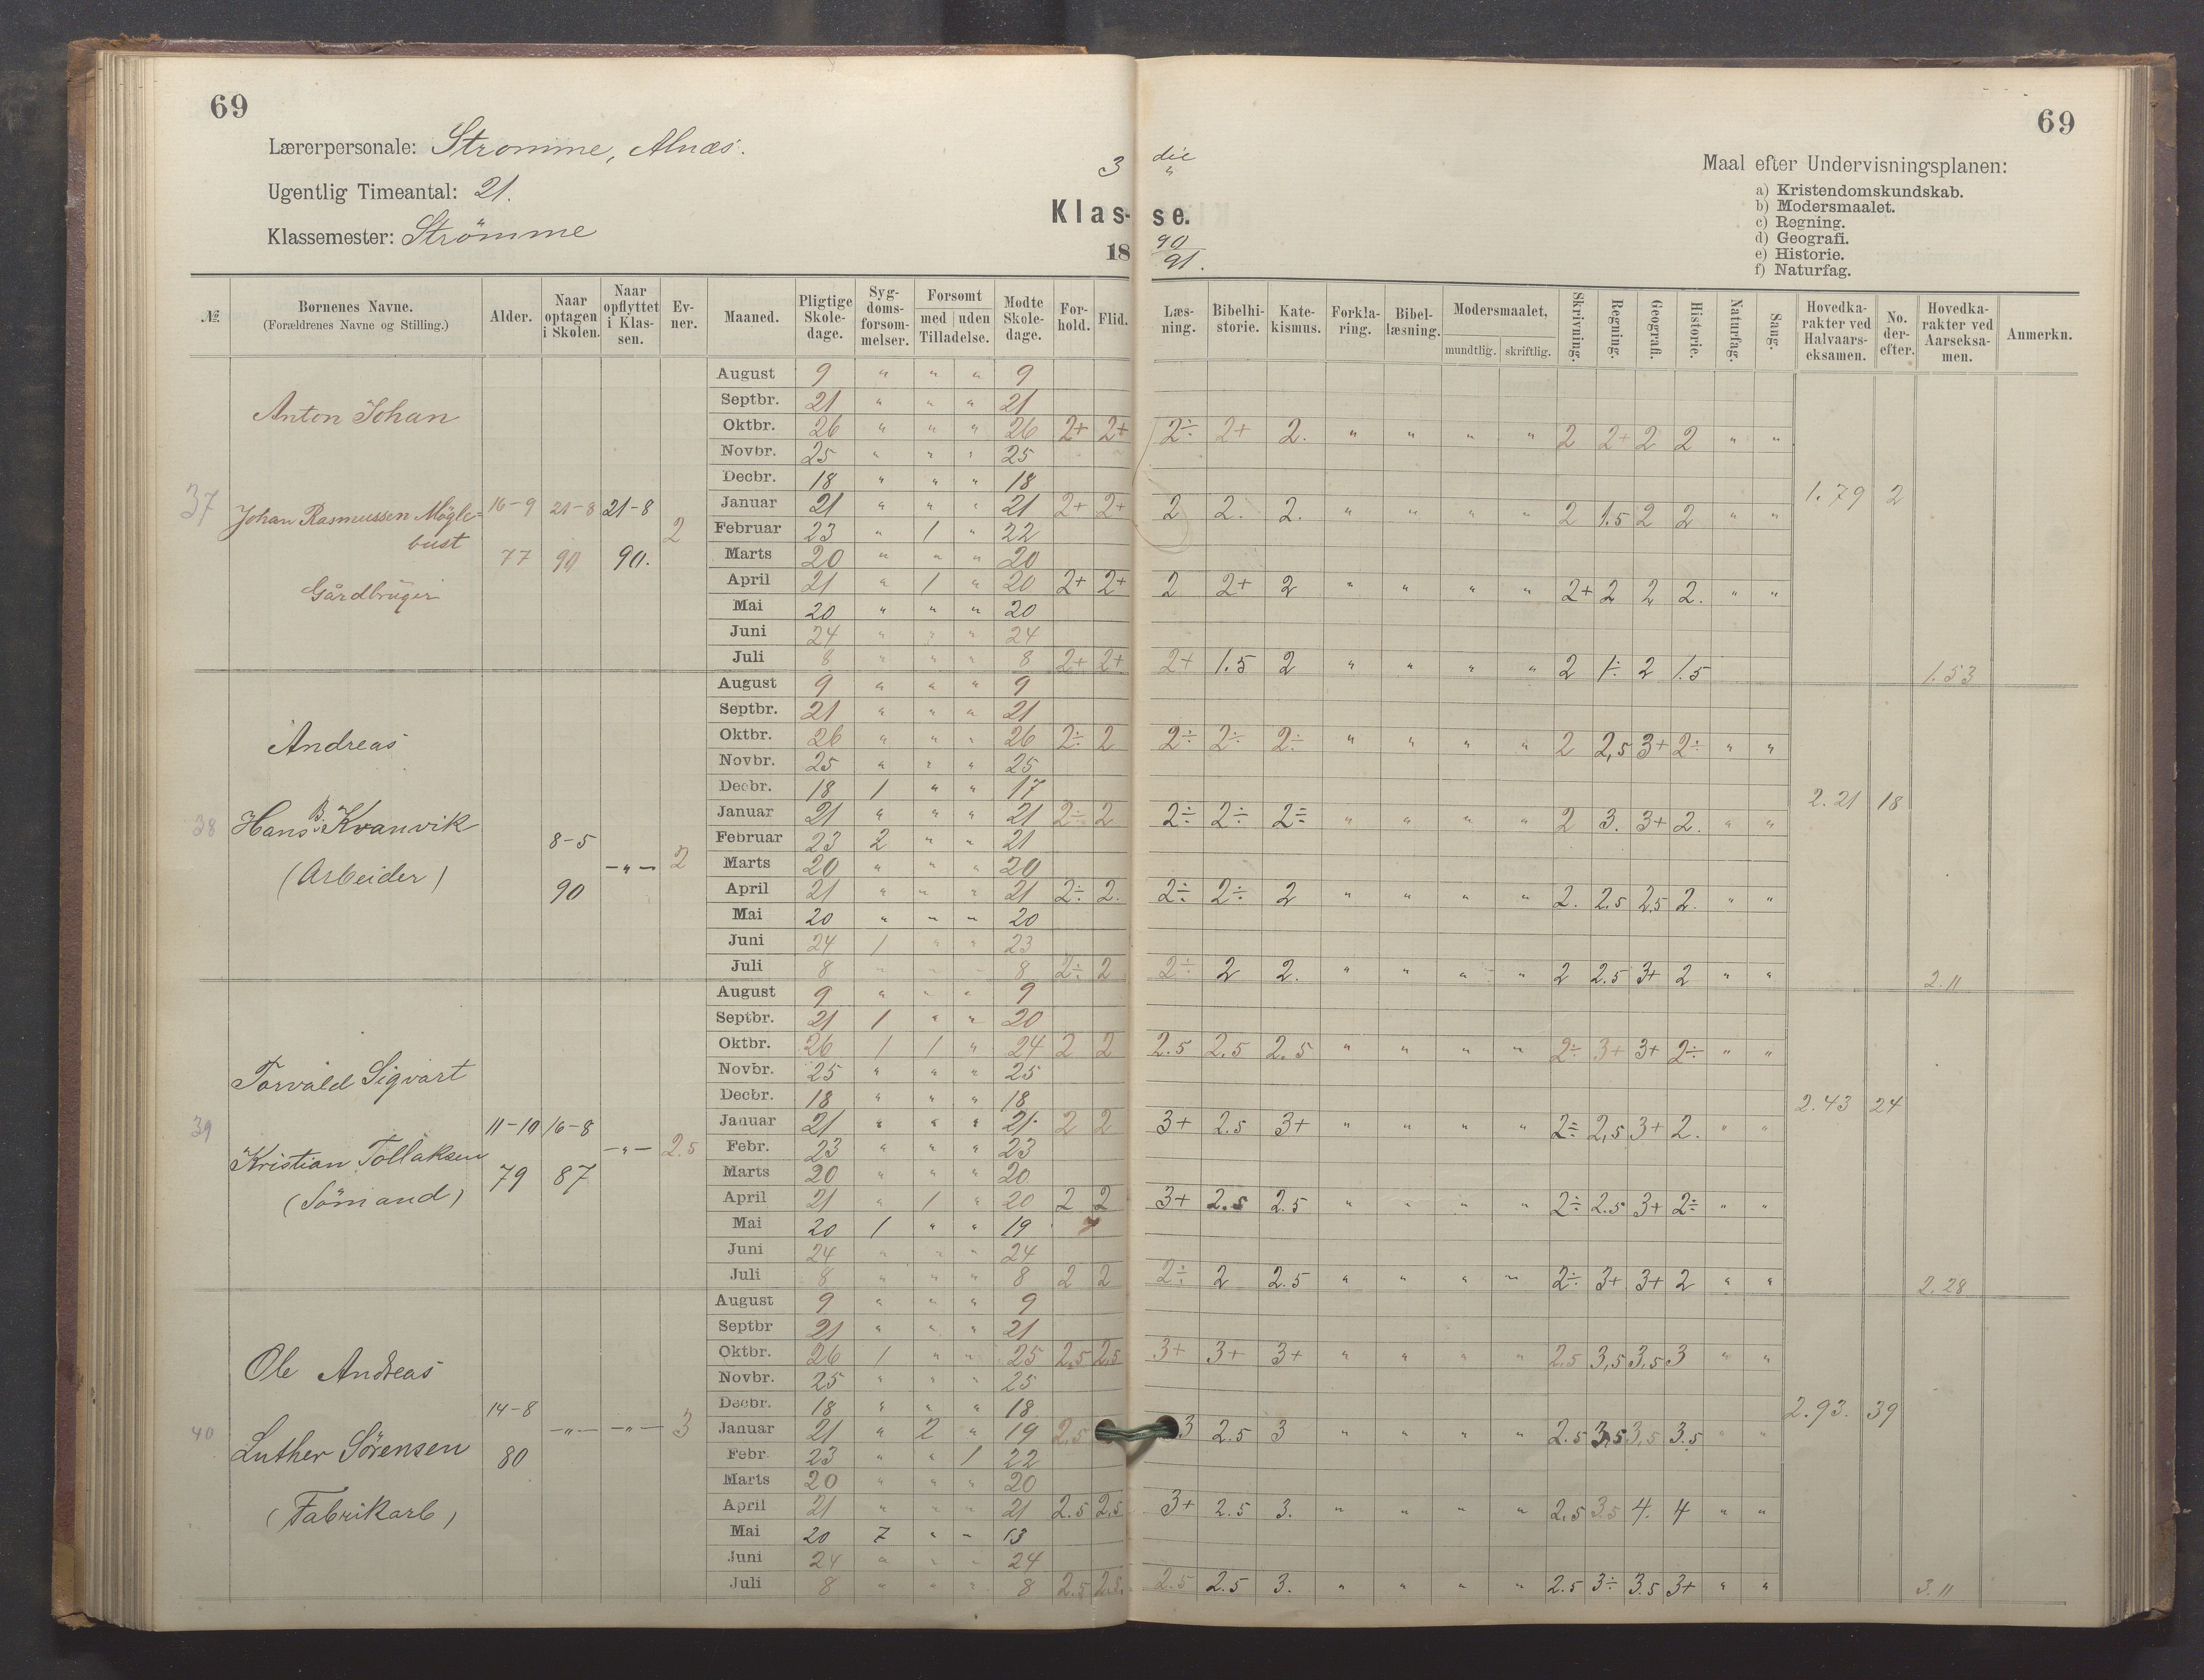 69
69
Lærerpersonale: Stromme, Alnæs.
Ugentlig Timeantal: 21.
Klassemester: Strömme
3 die
Klas- se.
18 90/91.
Maal efter Undervisningsplanen:
a) Kristendomskundskab.
b) Modersmaalet.
c) Regning.
d) Geografi.
e) Historie.
f) Naturfag.
№ | Børnenes Navne. (Forældrenes Navne og Stilling.) | Alder. | Naar optagen i Skolen. | Naar opflyttet i Klassen. | Evner. | Maaned. | Pligtige Skoledage. | Sygdomsforsommelser. | Forsomt med uden Tilladelse. | Modte Skoledage. | Forhold. | Flid. | Læsning. | Bibelhistorie. | Katekismus. | Forklaring. | Bibellæsning. | Modersmaalet, mundtlig. skriftlig. | Skrivning. | Regning. | Geografi. | Historie. | Naturfag. | Sang. | Hovedkarakter ved Halvaarseksamen. | No. derefter. | Hovedkarakter ved Aarseksamen. | Anmerkn.
37 Anton Johan
Johan Rasmussen Möglebust
Gårdbruger
16-9 77 | 21-8 90 | 21-8 90. | 2
August 9 " " " 9
Septbr. 21 " " " 21
Oktbr. 26 " " " 26 2+ 2+ 2÷ 2+ 2. " " " " 2 2+ 2 2 " "
Novbr. 25 " " " 25
Decbr. 18 " " " 18
1.79 2
Januar 21 " " " 21 2+ 2+ 2 2. 2. " " " " 2 1.5 2 2 " "
Februar 23 " 1 " 22
Marts 20 " " " 20
April 21 " 1 " 20 2+ 2+ 2 2+ 2 " " " " 2+ 2 2 2. " "
Mai 20 " " " 20
Juni 24 " " " 24
Juli 8 " " " 8 2+ 2+ 2+ 1.5 2 " " " " 2 1÷ 2 1.5
1.53
38 Andreas
Hans B. Kvanvik
(Arbeider)
8-5 90 | -"- | 2
August 9 " " " 9
Septbr. 21 " " " 21
Oktbr. 26 " " " 26 2÷ 2 2÷ 2÷ 2÷ " " " " 2 2,5 3+ 2÷ " "
Novbr. 25 " " " 25
Decbr. 18 1 " " 17
2.21 18
Januar 21 " " " 21 2÷ 2 2÷ 2÷ 2÷ " " " " 2 3. 3+ 2. " "
Februar 23 2 " " 21
Marts 20 " " " 20
April 21 " " " 21 2÷ 2. 2÷ 2÷ 2 " " " " 2. 2.5 2,5 2. " "
Mai 20 " " " 20
Juni 24 1 " " 23
Juli 8 " " " 8 2÷ 2 2÷ 2 2. " " " " 2 2.5 3+ 2 " "
2.11
39 Torvald Sigvart
Kristian Tollaksen
(Sömand)
11-10 79 | 16-8 87 | -"- | 2.5
August 9 " " " 9
Septbr. 21 1 " " 20
Oktbr. 26 1 1 " 24 2 2 2.5 2.5 2.5 " " " " 2÷ 3+ 3+ 2÷ " "
Novbr. 25 " " " 25
Decbr. 18 " " " 18
2.43 24
Januar 21 " " " 21 2 2 3+ 2.5 3+ " " " " 2÷ 2,5 3+ 2. " "
Febr. 23 " " " 23
Marts 20 " " " 20
April 21 " 1 " 20 2 2 3+ 2.5 2.5 " " " " 2÷ 2.5 3+ 2÷ " "
Mai 20 1 " " 19
Juni 24 " " " 24
Juli 8 " " " 8 2 2 2÷ 2 2.5 " " " " 2÷ 3+ 3+ 2 " "
2.28
40 Ole Andreas
Luther Sörensen
(Fabrikarb)
14-8 80 | -"- | -"- | 3
August 9 " " " 9
Septbr 21 " " " 21
Oktbr. 26 1 " " 25 2,5 2,5 3+ 3+ 3+ " " " " 2.5 3,5 3,5 3 " "
Novbr. 25 " " " 25
Decbr. 18 " " " 18
2.93. 39
Januar 21 " 2 " 19 2,5 3 2.5 3 " " " " 2.5 3,5 3,5 3.5 " "
Febr. 23 " " 1 22
Marts 20 " " " 20
April 21 " " " 21 2.5 2.5 3+ 2.5 3. " " " " 2.5 3.5 4. 4 " "
Mai 20 7 " " 13
Juni 24 " " " 24
Juli 8 " " " 8 2.5 2.5 2.5 2.5 3. " " " " 2.5 3÷ 3.5 3+ " "
3.11